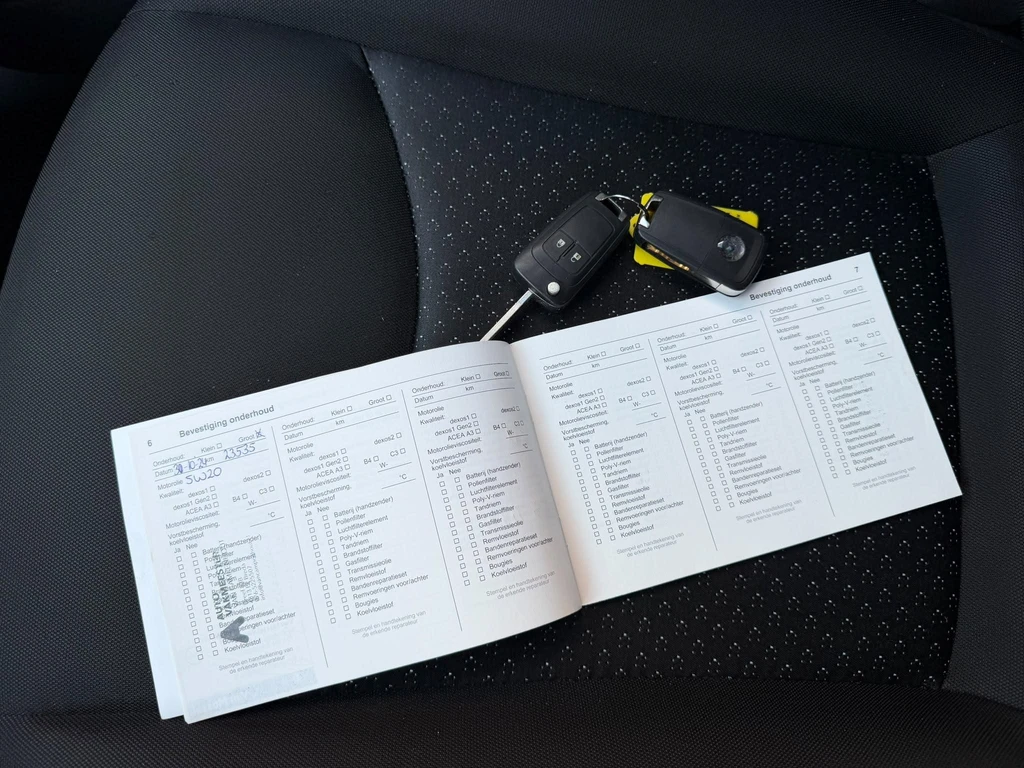 6 Bevestiging onderhoud
Onderhoud: Klein ☐ Groot ☒
Datum 10-10-24 km 23535
Motorolie 5W20
Kwaliteit: dexos1 ☐ dexos2 ☐
dexos1 Gen2 ☐
ACEA A3 ☐ B4 ☐ C3 ☐
Motorolieviscositeit: W-
Vorstbescherming, °C
koelvloeistof
Ja Nee
☐ ☐ Batterij (handzender)
☐ ☐ Pollenfilter
☐ ☐
☐ ☐
☐ ☐
☐ ☐
☐ ☐
☐ ☐
☐ ☐
☐ ☐
☐ ☐
☐ ☐
☐ ☐ Koelvloeistof
AUTO
VAKMEESTER
Stempel en handtekening van
de erkende reparateur
Onderhoud: Klein ☐ Groot ☐
Datum km
Motorolie
Kwaliteit: dexos1 ☐ dexos2 ☐
dexos1 Gen2 ☐
ACEA A3 ☐ B4 ☐ C3 ☐
Motorolieviscositeit: W-
Vorstbescherming, °C
koelvloeistof
Ja Nee
☐ ☐ Batterij (handzender)
☐ ☐ Pollenfilter
☐ ☐ Luchtfilterelement
☐ ☐ Poly-V-riem
☐ ☐ Tandriem
☐ ☐ Brandstoffilter
☐ ☐ Gasfilter
☐ ☐ Transmissieolie
☐ ☐ Remvloeistof
☐ ☐ Bandenreparatieset
☐ ☐ Remvoeringen voor/achter
☐ ☐ Bougies
☐ ☐ Koelvloeistof
Stempel en handtekening van
de erkende reparateur
Onderhoud: Klein ☐ Groot ☐
Datum km
Motorolie
Kwaliteit: dexos1 ☐ dexos2 ☐
dexos1 Gen2 ☐
ACEA A3 ☐ B4 ☐ C3 ☐
Motorolieviscositeit: W-
Vorstbescherming, °C
koelvloeistof
Ja Nee
☐ ☐ Batterij (handzender)
☐ ☐ Pollenfilter
☐ ☐ Luchtfilterelement
☐ ☐ Poly-V-riem
☐ ☐ Tandriem
☐ ☐ Brandstoffilter
☐ ☐ Gasfilter
☐ ☐ Transmissieolie
☐ ☐ Remvloeistof
☐ ☐ Bandenreparatieset
☐ ☐ Remvoeringen voor/achter
☐ ☐ Bougies
☐ ☐ Koelvloeistof
Stempel en handtekening van
de erkende reparateur
Bevestiging onderhoud 7
Onderhoud: Klein ☐ Groot ☐
Datum km
Motorolie
Kwaliteit: dexos1 ☐ dexos2 ☐
dexos1 Gen2 ☐
ACEA A3 ☐ B4 ☐ C3 ☐
Motorolieviscositeit: W-
Vorstbescherming, °C
koelvloeistof
Ja Nee
☐ ☐ Batterij (handzender)
☐ ☐ Pollenfilter
☐ ☐ Luchtfilterelement
☐ ☐ Poly-V-riem
☐ ☐ Tandriem
☐ ☐ Brandstoffilter
☐ ☐ Gasfilter
☐ ☐ Transmissieolie
☐ ☐ Remvloeistof
☐ ☐ Bandenreparatieset
☐ ☐ Remvoeringen voor/achter
☐ ☐ Bougies
☐ ☐ Koelvloeistof
Stempel en handtekening van
de erkende reparateur
Onderhoud: Klein ☐ Groot ☐
Datum km
Motorolie
Kwaliteit: dexos1 ☐ dexos2 ☐
dexos1 Gen2 ☐
ACEA A3 ☐ B4 ☐ C3 ☐
Motorolieviscositeit: W-
Vorstbescherming, °C
koelvloeistof
Ja Nee
☐ ☐ Batterij (handzender)
☐ ☐ Pollenfilter
☐ ☐ Luchtfilterelement
☐ ☐ Poly-V-riem
☐ ☐ Tandriem
☐ ☐ Brandstoffilter
☐ ☐ Gasfilter
☐ ☐ Transmissieolie
☐ ☐ Remvloeistof
☐ ☐ Bandenreparatieset
☐ ☐ Remvoeringen voor/achter
☐ ☐ Bougies
☐ ☐ Koelvloeistof
Stempel en handtekening van
de erkende reparateur
Onderhoud: Klein ☐ Groot ☐
Datum km
Motorolie
Kwaliteit: dexos1 ☐ dexos2 ☐
dexos1 Gen2 ☐
ACEA A3 ☐ B4 ☐ C3 ☐
Motorolieviscositeit: W-
Vorstbescherming, °C
koelvloeistof
Ja Nee
☐ ☐ Batterij (handzender)
☐ ☐ Pollenfilter
☐ ☐ Luchtfilterelement
☐ ☐ Poly-V-riem
☐ ☐ Tandriem
☐ ☐ Brandstoffilter
☐ ☐ Gasfilter
☐ ☐ Transmissieolie
☐ ☐ Remvloeistof
☐ ☐ Bandenreparatieset
☐ ☐ Remvoeringen voor/achter
☐ ☐ Bougies
☐ ☐ Koelvloeistof
Stempel en handtekening van
de erkende reparateur